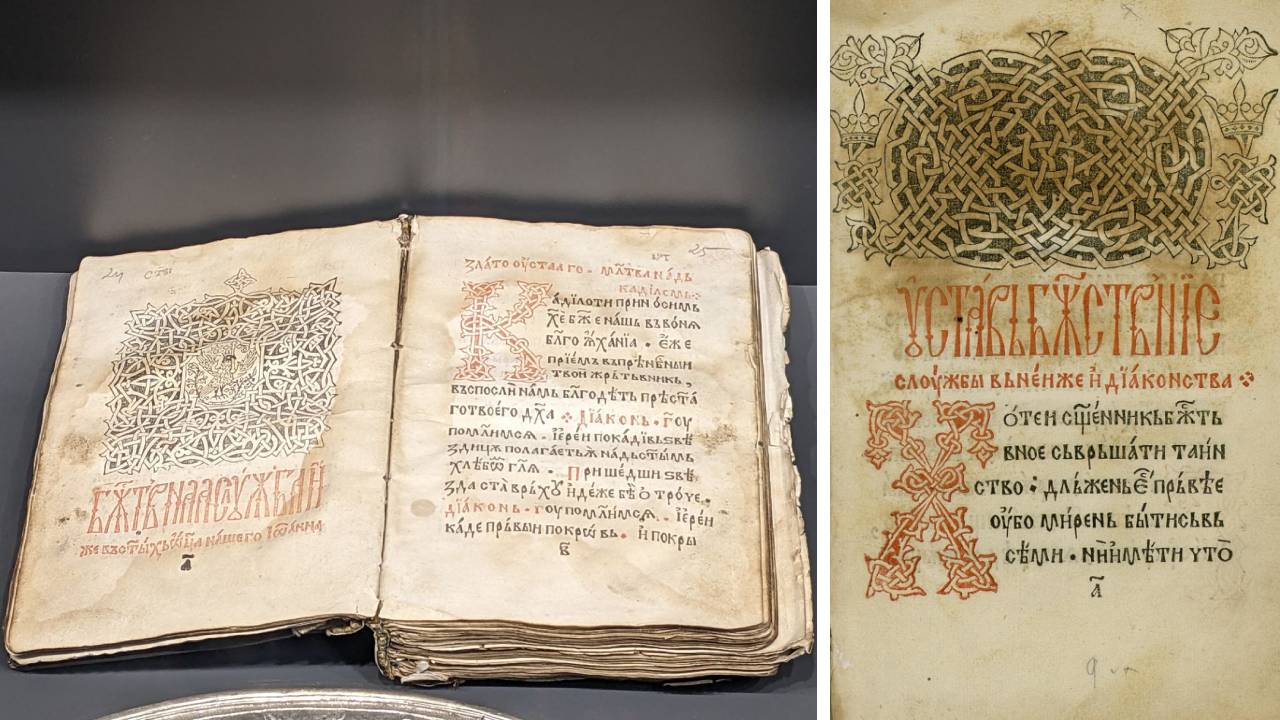 24
БЖ҃ТВНАА СЛОУЖБА И
же въ ст҃ыхь ѿц҃а нашего Іѡанна
а҃
25
ЗЛАТО ОУСТАА ГО · МЛ҃ТВА НАДЬ
КАДІЛЕМЬ
Кадїлоти прин ѻсимь
Хе бж҃е нашь въвонѧ
бл҃го ꙋ҃ханїа · єже
прїемь въпрѣнб҃ным
твои жрътьвникь,
въспосли намь бл҃годѣть прѣст҃а
готвоего дх҃а ⁘ Дїаконь · гоу
помлимсѧ · Іерен покадївь ѕвѣ
здицꙋ полагаетьѫ надьст҃ымь
хлѣбѡ гл҃ѧ · Пришедши ѕвѣ
зда ста врьхꙋ идеже бѣ ѻ троче ·
дїаконь · гоу помлимсѧ · Іерен
каде прьвыи покрѡвь · И покры
в҃
ОУСТАВЬ БЖ҃СТВЬНЇЕ
слоужбы вьненже и дїаконства ⁘
Хотеи сщ҃енникь бж҃ть
вное сьврьшати таин
ство : дльжень є҃ прьвѣе
оубо мирень быти сьвь
сѣми · не имѣти что
а҃
9